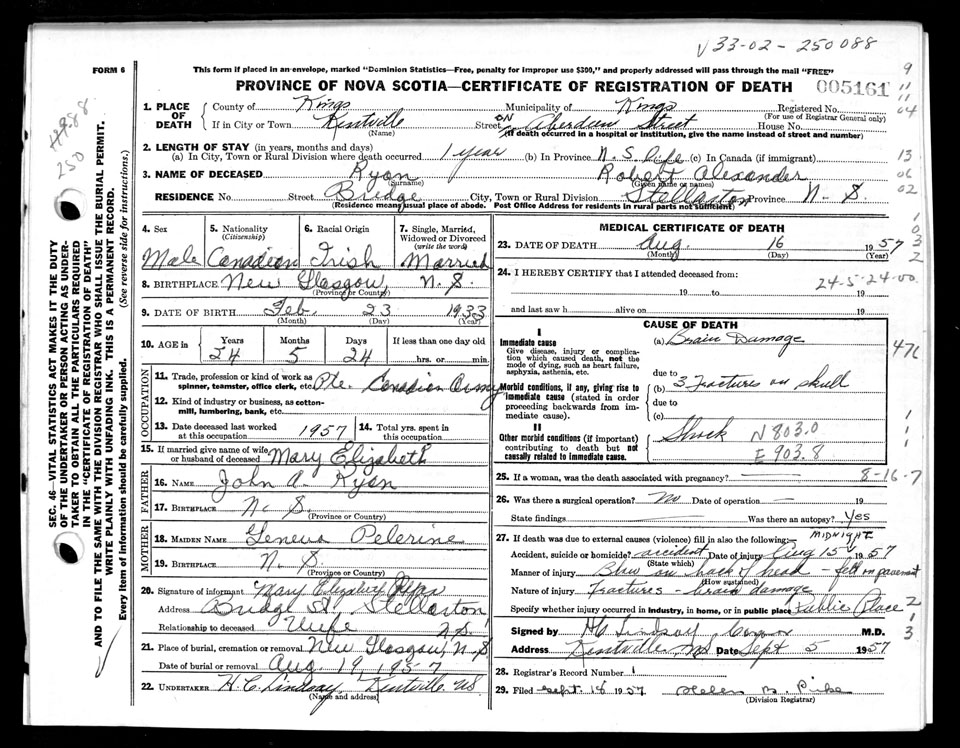 V33-02-250088
FORM 6
This form if placed in an envelope, marked "Dominion Statistics—Free, penalty for improper use $300," and properly addressed will pass through the mail "FREE"
PROVINCE OF NOVA SCOTIA—CERTIFICATE OF REGISTRATION OF DEATH 005161
1. PLACE OF DEATH
County of Kings Municipality of Kings Registered No.
(For use of Registrar General only)
If in City or Town Kentville Street ON Aberdeen Street House No.
(Name) (If death occurred in a hospital or institution, give the name instead of street and number)
2. LENGTH OF STAY (in years, months and days)
(a) In City, Town or Rural Division where death occurred 1 year (b) In Province N. S. life (c) In Canada (if immigrant)
3. NAME OF DECEASED Ryan Robert Alexander
(Surname) (Given name or names)
RESIDENCE No. Street Bridge City, Town or Rural Division Stellarton Province N. S.
(Residence means usual place of abode. Post Office Address for residents in rural parts not sufficient)
4. Sex 5. Nationality (Citizenship) 6. Racial Origin 7. Single, Married, Widowed or Divorced (write the word)
Male Canadian Irish Married
8. BIRTHPLACE New Glasgow, N. S.
(Province or Country)
9. DATE OF BIRTH Feb. 23 1933
(Month) (Day) (Year)
10. AGE in Years Months Days If less than one day old
24 5 24 hrs. or min.
OCCUPATION
11. Trade, profession or kind of work as spinner, teamster, office clerk, etc. Pte. Canadian Army
12. Kind of industry or business, as cotton-mill, lumbering, bank, etc.
13. Date deceased last worked at this occupation 1957 14. Total yrs. spent in this occupation
15. If married give name of wife or husband of deceased Mary Elizabeth
FATHER
16. NAME John A. Ryan
17. BIRTHPLACE N. S.
(Province or Country)
MOTHER
18. MAIDEN NAME Geneva Pelerine
19. BIRTHPLACE N. S.
(Province or Country)
20. Signature of informant Mary Elizabeth Ryan
Address Bridge St, Stellarton
Relationship to deceased Wife N.S.
21. Place of burial, cremation or removal New Glasgow, N.S
Date of burial or removal Aug. 19, 1957
22. UNDERTAKER H. C. Lindsay, Kentville NS
(Name and address)
MEDICAL CERTIFICATE OF DEATH
23. DATE OF DEATH Aug. 16 1957
(Month) (Day) (Year)
24. I HEREBY CERTIFY that I attended deceased from:
24-5-24-00
19 to 19
and last saw h alive on 19
CAUSE OF DEATH
I
Immediate cause
Give disease, injury or complication which caused death, not the mode of dying, such as heart failure, asphyxia, asthenia, etc.
(a) Brain Damage
due to
Morbid conditions, if any, giving rise to immediate cause (stated in order proceeding backwards from immediate cause).
(b) 3 Fractures on skull
due to
(c)
II
Other morbid conditions (if important) contributing to death but not causally related to immediate cause.
Shock N 803.0
E 903.8
25. If a woman, was the death associated with pregnancy? 8-16-7
26. Was there a surgical operation? No Date of operation — 19
State findings Was there an autopsy? Yes
27. If death was due to external causes (violence) fill in also the following:—
MIDNIGHT
Accident, suicide or homicide? accident Date of injury Aug 15 1957
(State which)
Manner of injury Blow on back of head - fell on pavement
(How sustained)
Nature of injury Fractures - brain damage
Specify whether injury occurred in industry, in home, or in public place Public Place
Signed by H C Lindsay, Coroner M.D.
Address Kentville, NS Date Sept 5 1957
28. Registrar's Record Number 1
29. Filed Sept. 18 1957 Helen B. Pike
(Division Registrar)
SEC. 46—VITAL STATISTICS ACT MAKES IT THE DUTY
OF THE UNDERTAKER OR PERSON ACTING AS UNDER-
TAKER TO OBTAIN ALL THE PARTICULARS REQUIRED
IN THE "CERTIFICATE OF REGISTRATION OF DEATH"
AND TO FILE THE SAME WITH THE DIVISION REGISTRAR WHO SHALL ISSUE THE BURIAL PERMIT.
WRITE PLAINLY WITH UNFADING INK. THIS IS A PERMANENT RECORD.
Every item of information should be carefully supplied. (See reverse side for instructions.)
250
9
11
11
04
13
06
02
1
0
3
2
476
1
1
1
2
1
3